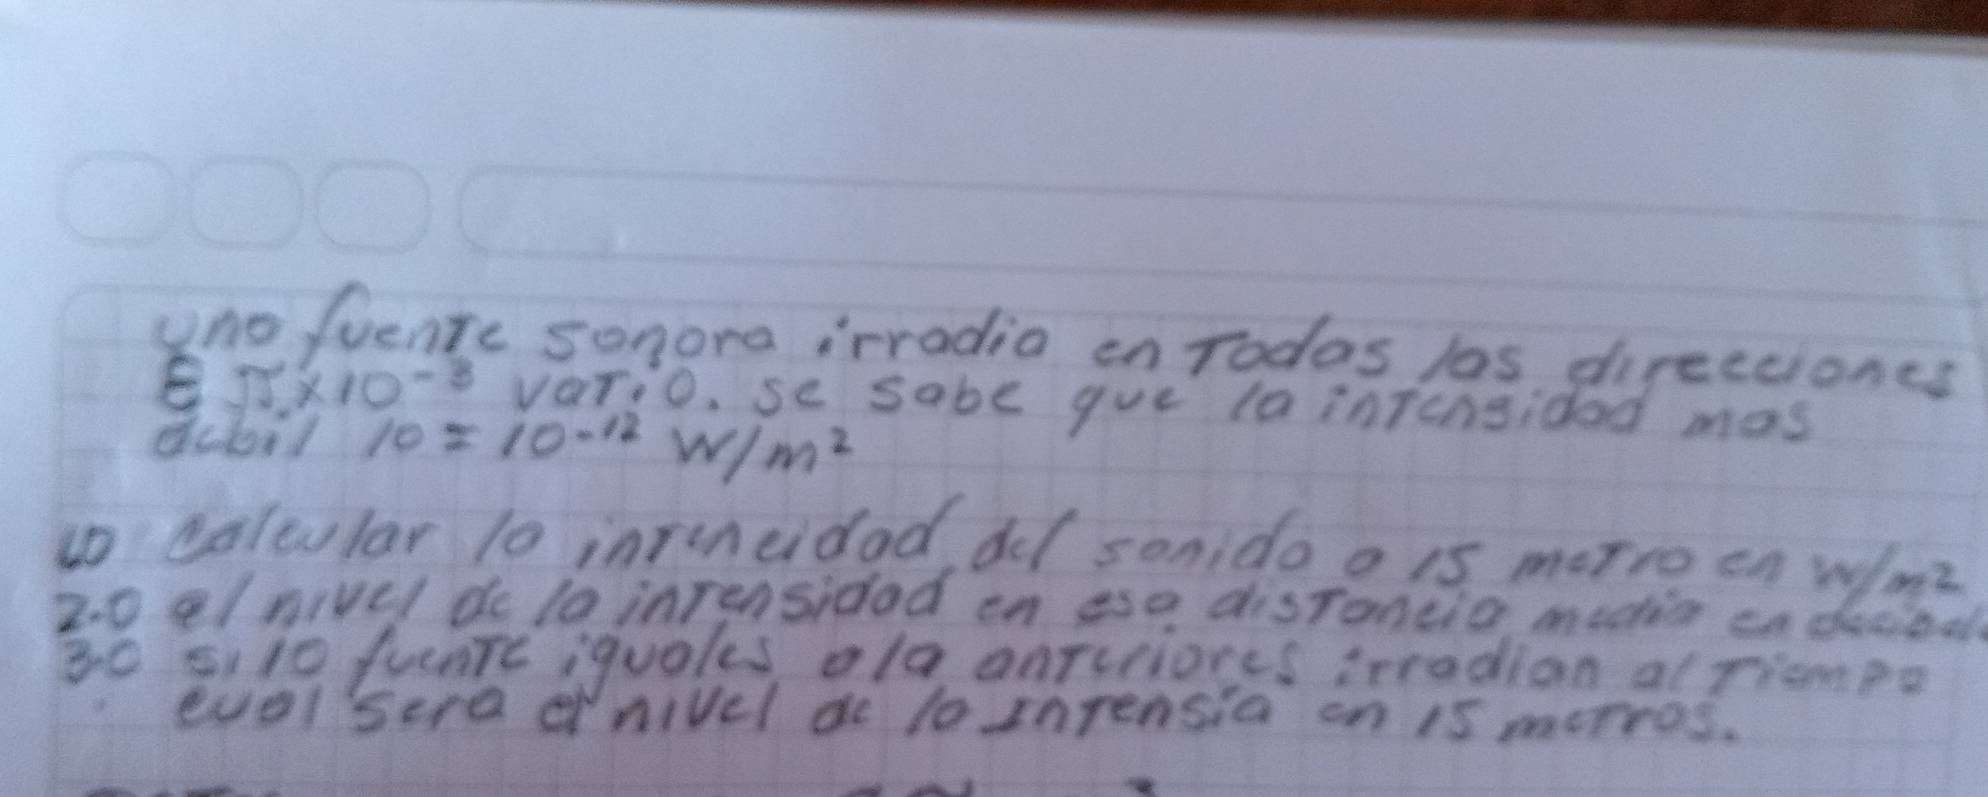 uno fuente sonora irradia en Todas las direcciones
π×10-3 vatio. se sabe que la intensidad mas
debil 10 = 10-12 W/m²
10 calcular la inteneidad del sonido a 15 metro en w/m²
2.0 el nivel de la intensidad en esa distancia media en
3.0 si 10 fuente iguales a la anteriores irradian al Tiempo
cual sera el nivel de la Intensia en 15 metros.